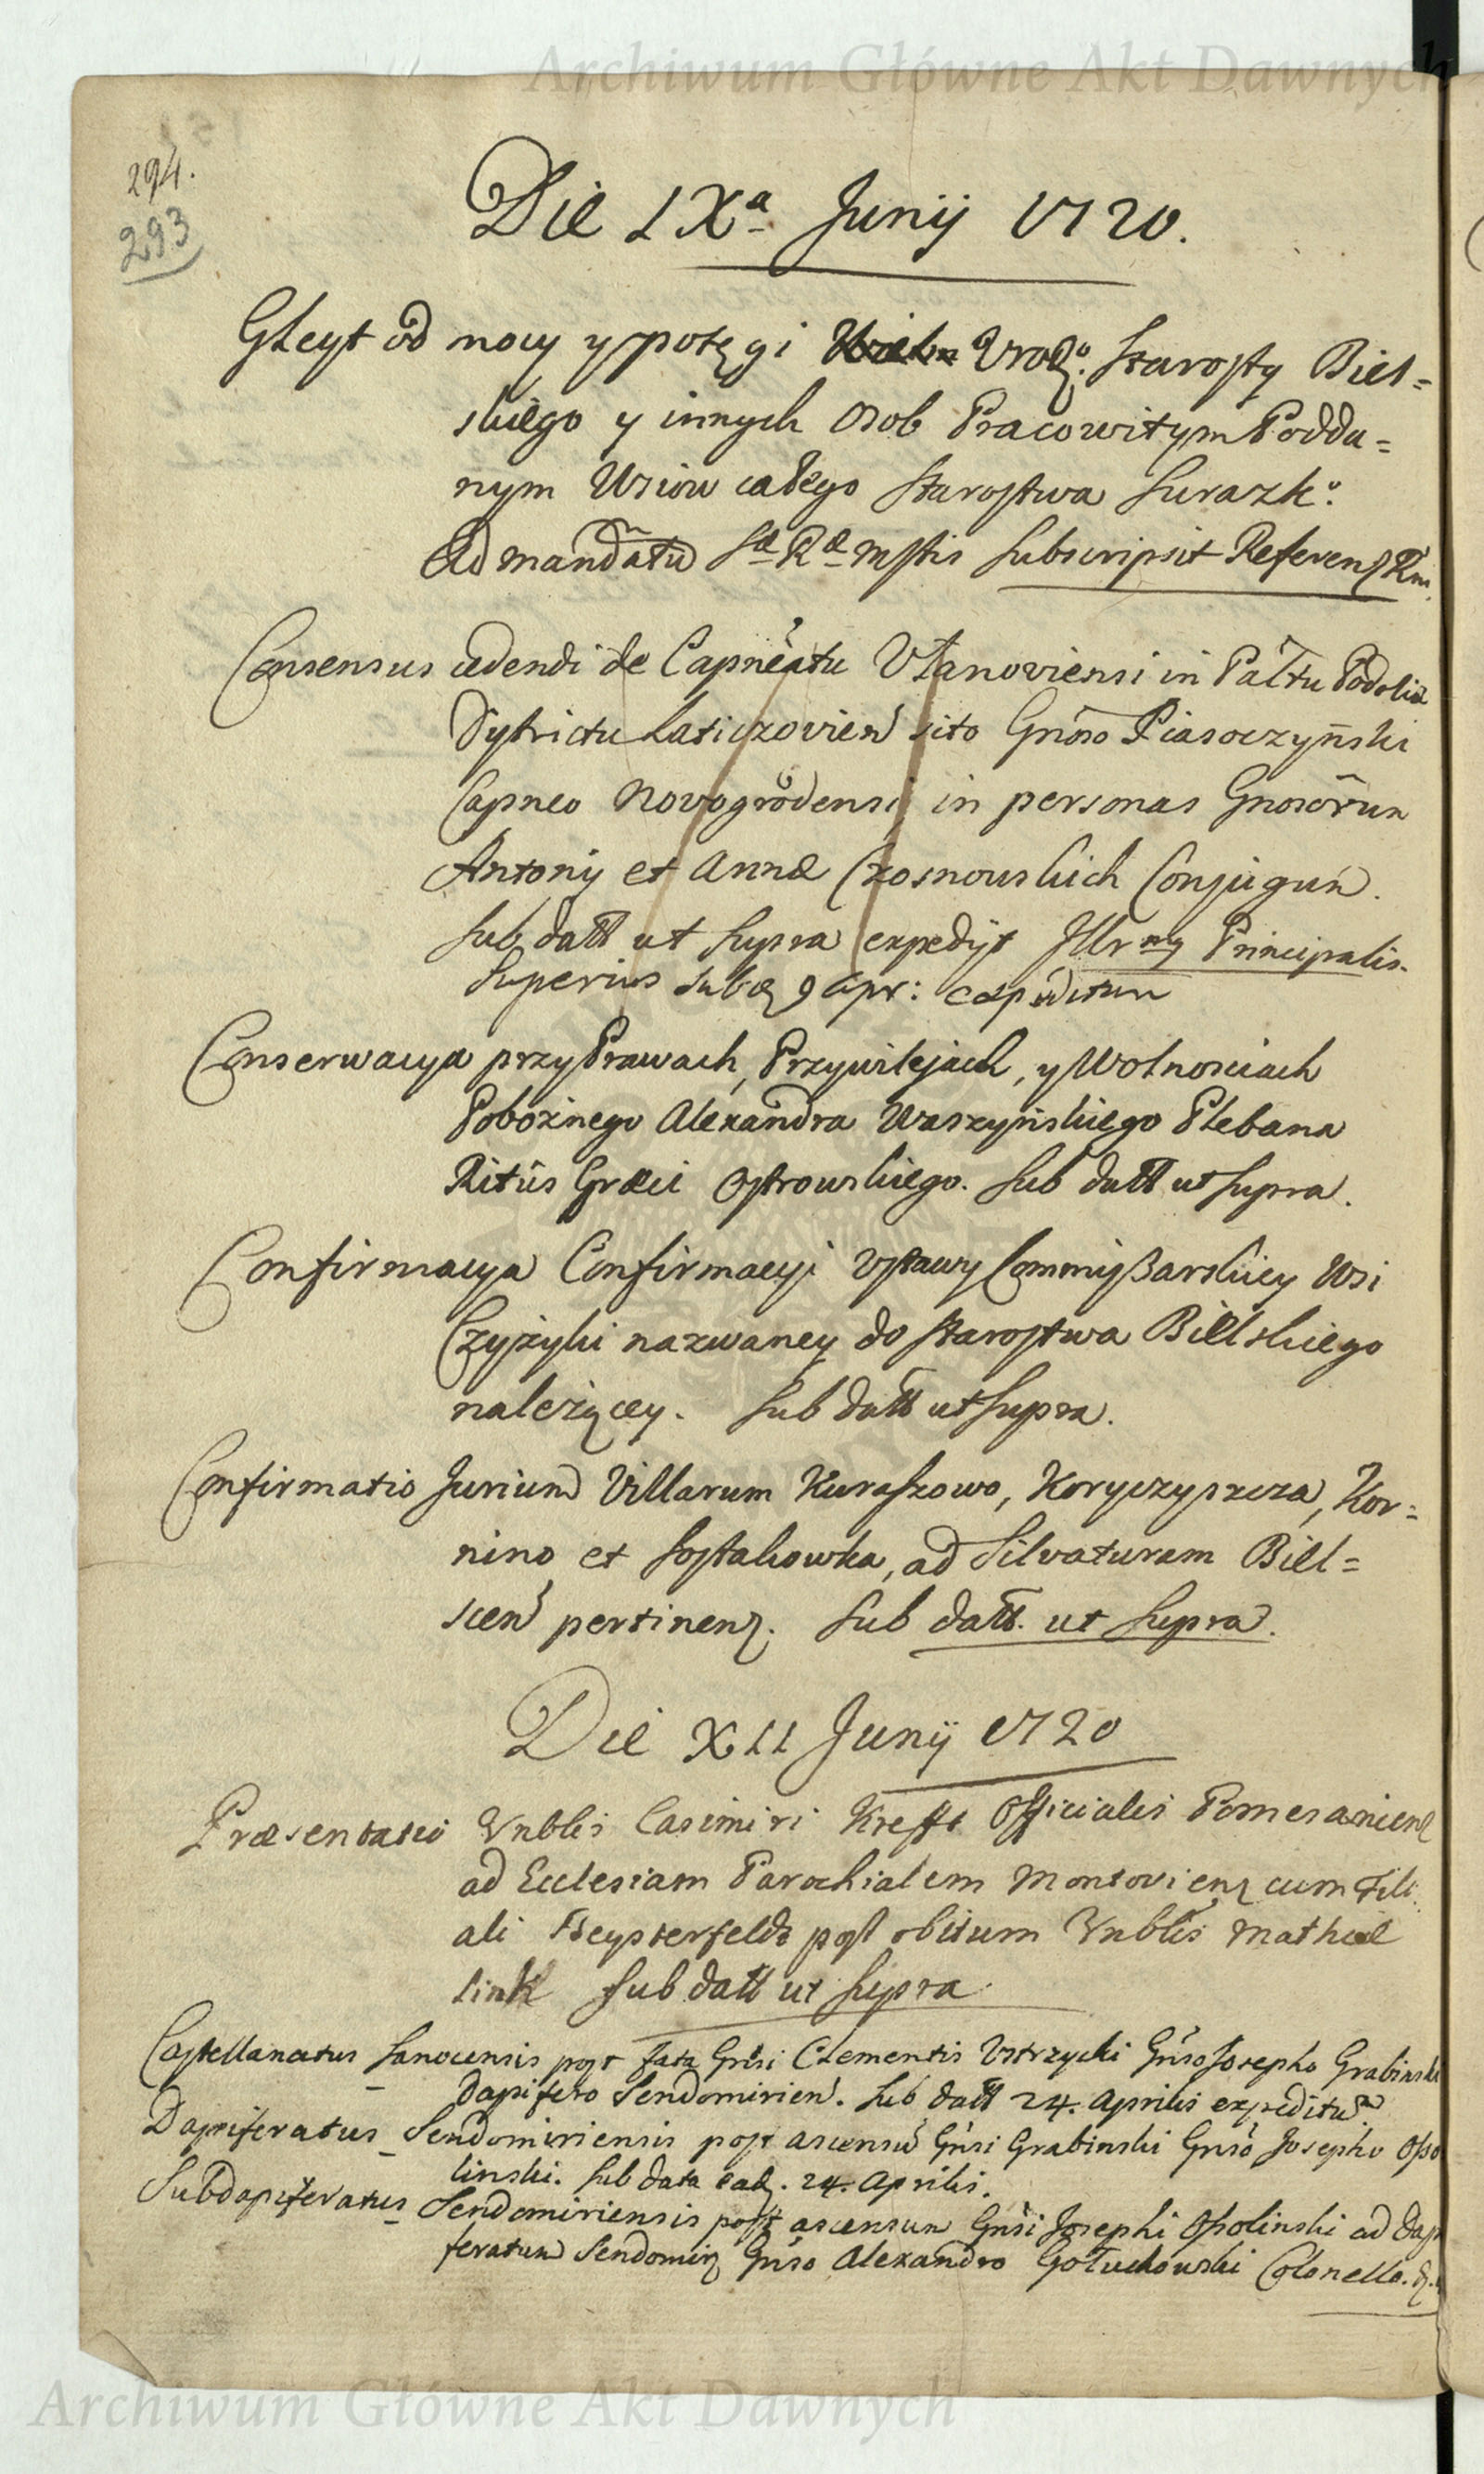 Archiwum Główne Akt Dawnych
294.
293
Die IXa Junij 1720.
Gleyt od mocy y potęgi Urodzo. Starosty Biel=
skiego y innych osob Pracowitym Podda=
nym Wsiow całego Starostwa Surazko.
Ad mandatu Sæ Ræ Mstis subscripsit Referen Rni
Consensus cedendi de Capneatu Ułanoviensi in Pałtu Podoliæ
Dystrictu Laticzovien sito Gnoso Piasoczyński
Capneo Novogrodensi in personas Gnosorum
Antonij et Annæ Czosnowskich Conjugum.
Sub datt ut supra expedijt Illrmg Principalis.
Superius sub d 9 Apr: expeditum
Conserwacya przy Prawach, Przywilejach, y Wolnosciach
Pobożnego Alexandra Waszyńskiego Plebana
Ritûs Græci Ostrowskiego. Sub datt ut supra.
Confirmacya Confirmacyi Ustawy Commißarskiey Wsi
Czyżyki nazwaney do Starostwa Bielskiego
należącey. Sub datt ut supra.
Confirmatio Jurium Villarum Kuraszowo, Koryczyszcza, Kor=
nino et Sostakowka, ad Silvaturam Biel=
scen pertinen. Sub datt. ut supra.
Die XII Junij 1720
Præsentatio Vnblis Casimiri Krefft Officialis Pomesanien
ad Ecclesiam Parochialem Montovien cum Fili
ali Feysterfeldt post obitum Vnblis Mathiæ
Link Sub datt ut supra
Castellanatus Sanocensis post fata Gnsi Clementis Ustrzycki Gnso Josepho Grabinski
Dapifero Sendomirien. Sub datt 24. Aprilis expeditum
Dapiferatus Sendomiriensis post ascensu Gnsi Grabinski Gnso Josepho Osso
linski. Sub data ead. 24. Aprilis.
Subdapiferatus Sendomiriensis post ascensum Gnsi Josephi Ossolinski ad Dapi
feratum Sendomir Gnso Alexandro Gołuchowski Colonello.
Archiwum Główne Akt Dawnych